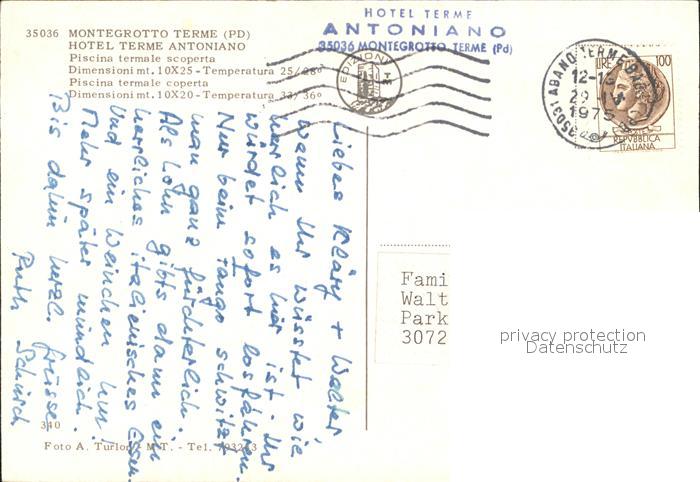 35036 MONTEGROTTO TERME (PD)
HOTEL TERME ANTONIANO
Piscina termale scoperta
Dimensioni mt. 10X25 - Temperatura 25/28°
Piscina termale coperta
Dimensioni mt. 10X20 - Temperatura 33/36°
HOTEL TERME
ANTONIANO
35036 MONTEGROTTO TERME (Pd)
EDIZIONI
35031 ABANO TERME
12-1
29
1975
LIRE 100
REPVBBLICA
ITALIANA
Liebes Kläry + Walter
wenn Ihr wüsstet wie
herrlich es hier ist. Ihr
würdet sofort losfahren.
Nur beim Tango schwitzt
man ganz fürchterlich.
Als Lohn gibts dann ein
herrliches italienisches Essen.
Und ein Weinchen hm!
Mehr später mündlich.
Bis dahin herzl. Grüsse
Ruth Schürch
Fami
Walt
Park
3072
privacy protection
Datenschutz
340
Foto A. Turlon - M.T. - Tel.